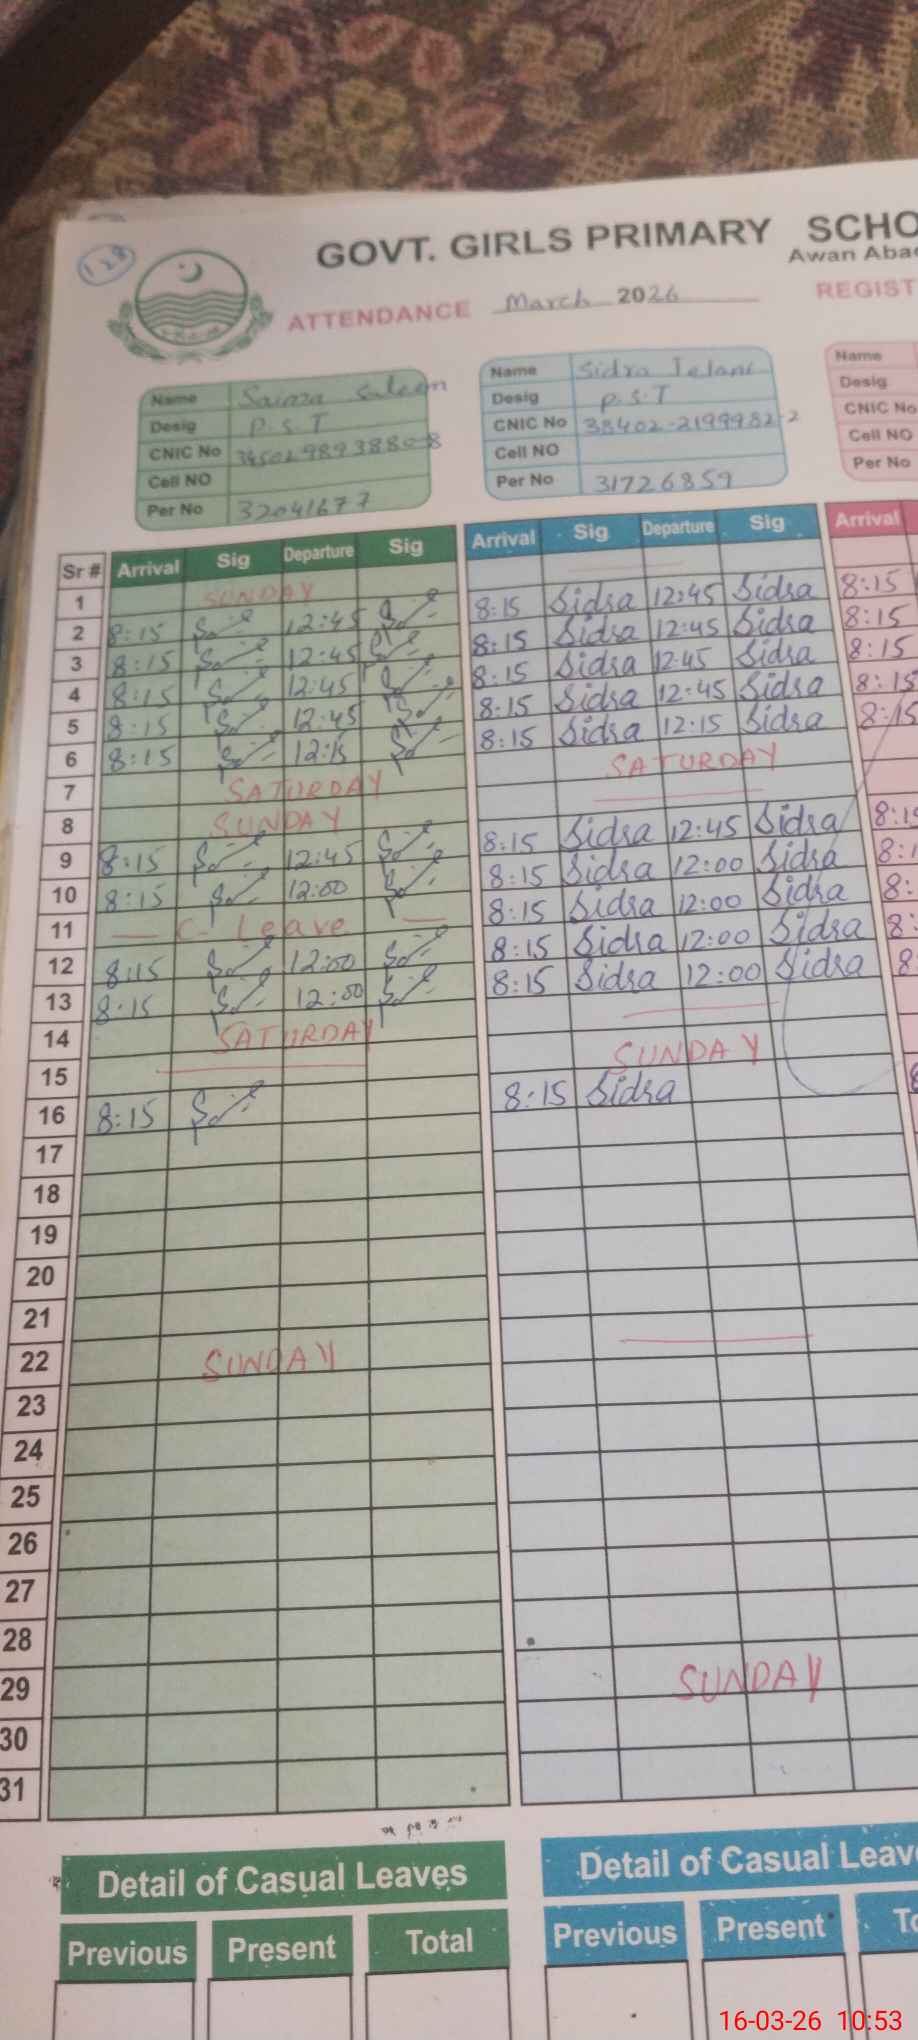 128
GOVT. GIRLS PRIMARY SCHO
Awan Aba
ATTENDANCE March 2026 REGIST
Name Saima Saleem
Desig P.S.T
CNIC No
Cell NO
Per No 32041677
Name Sidra Jelani
Desig P.S.T
CNIC No 38402-2199982-2
Cell NO
Per No 31726859
Name
Desig
CNIC No
Cell NO
Per No
Sr # Arrival Sig Departure Sig Arrival Sig Departure Sig Arrival
1 SUNDAY
2 8:15 12:45 8:15 Sidra 12:45 Sidra 8:15
3 8:15 12:45 8:15 Sidra 12:45 Sidra 8:15
4 8:15 12:45 8:15 Sidra 12:45 Sidra 8:15
5 8:15 12:45 8:15 Sidra 12:45 Sidra 8:15
6 8:15 12:15 8:15 Sidra 12:15 Sidra 8:15
7 SATURDAY SATURDAY
8 SUNDAY
9 8:15 12:45 8:15 Sidra 12:45 Sidra 8:15
10 8:15 12:00 8:15 Sidra 12:00 Sidra 8:1
11 C- Leave 8:15 Sidra 12:00 Sidra 8:
12 8:15 12:00 8:15 Sidra 12:00 Sidra 8:
13 8:15 12:00 8:15 Sidra 12:00 Sidra 8
14 SATURDAY
15 SUNDAY
16 8:15 8:15 Sidra 8
17
18
19
20
21
22 SUNDAY
23
24
25
26
27
28
29 SUNDAY
30
31
Detail of Casual Leaves Detail of Casual Leav
Previous Present Total Previous Present To
16-03-26 10:53